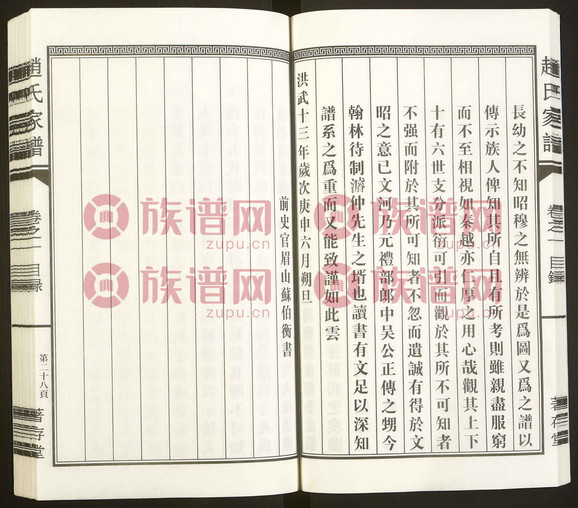 趙氏家譜
卷之一 目錄
著存堂
長幼之不知昭穆之無辨於是爲圖又爲之譜以
傳示族人俾知其所自且有所考則雖親盡服窮
而不至相視如秦越亦仁厚之用心哉觀其上下
十有六世支分派衍可引而觀於其所不可知者
不强而附於其所可知者不忽而遺誠有得於文
昭之意已文河乃元禮部郎中吴公正傳之甥今
翰林待制濬仲先生之壻也讀書有文足以深知
譜系之爲重而又能致謹如此雲
洪武十三年歲次庚申六月朔旦
前史官眉山蘇伯衡書
趙氏家譜
卷之一 目錄
第二十八頁
著存堂
族谱网
zupu.cn
族谱网
zupu.cn
族谱网
zupu.cn
族谱网
zupu.cn
族谱网
zupu.cn
族谱网
zupu.cn